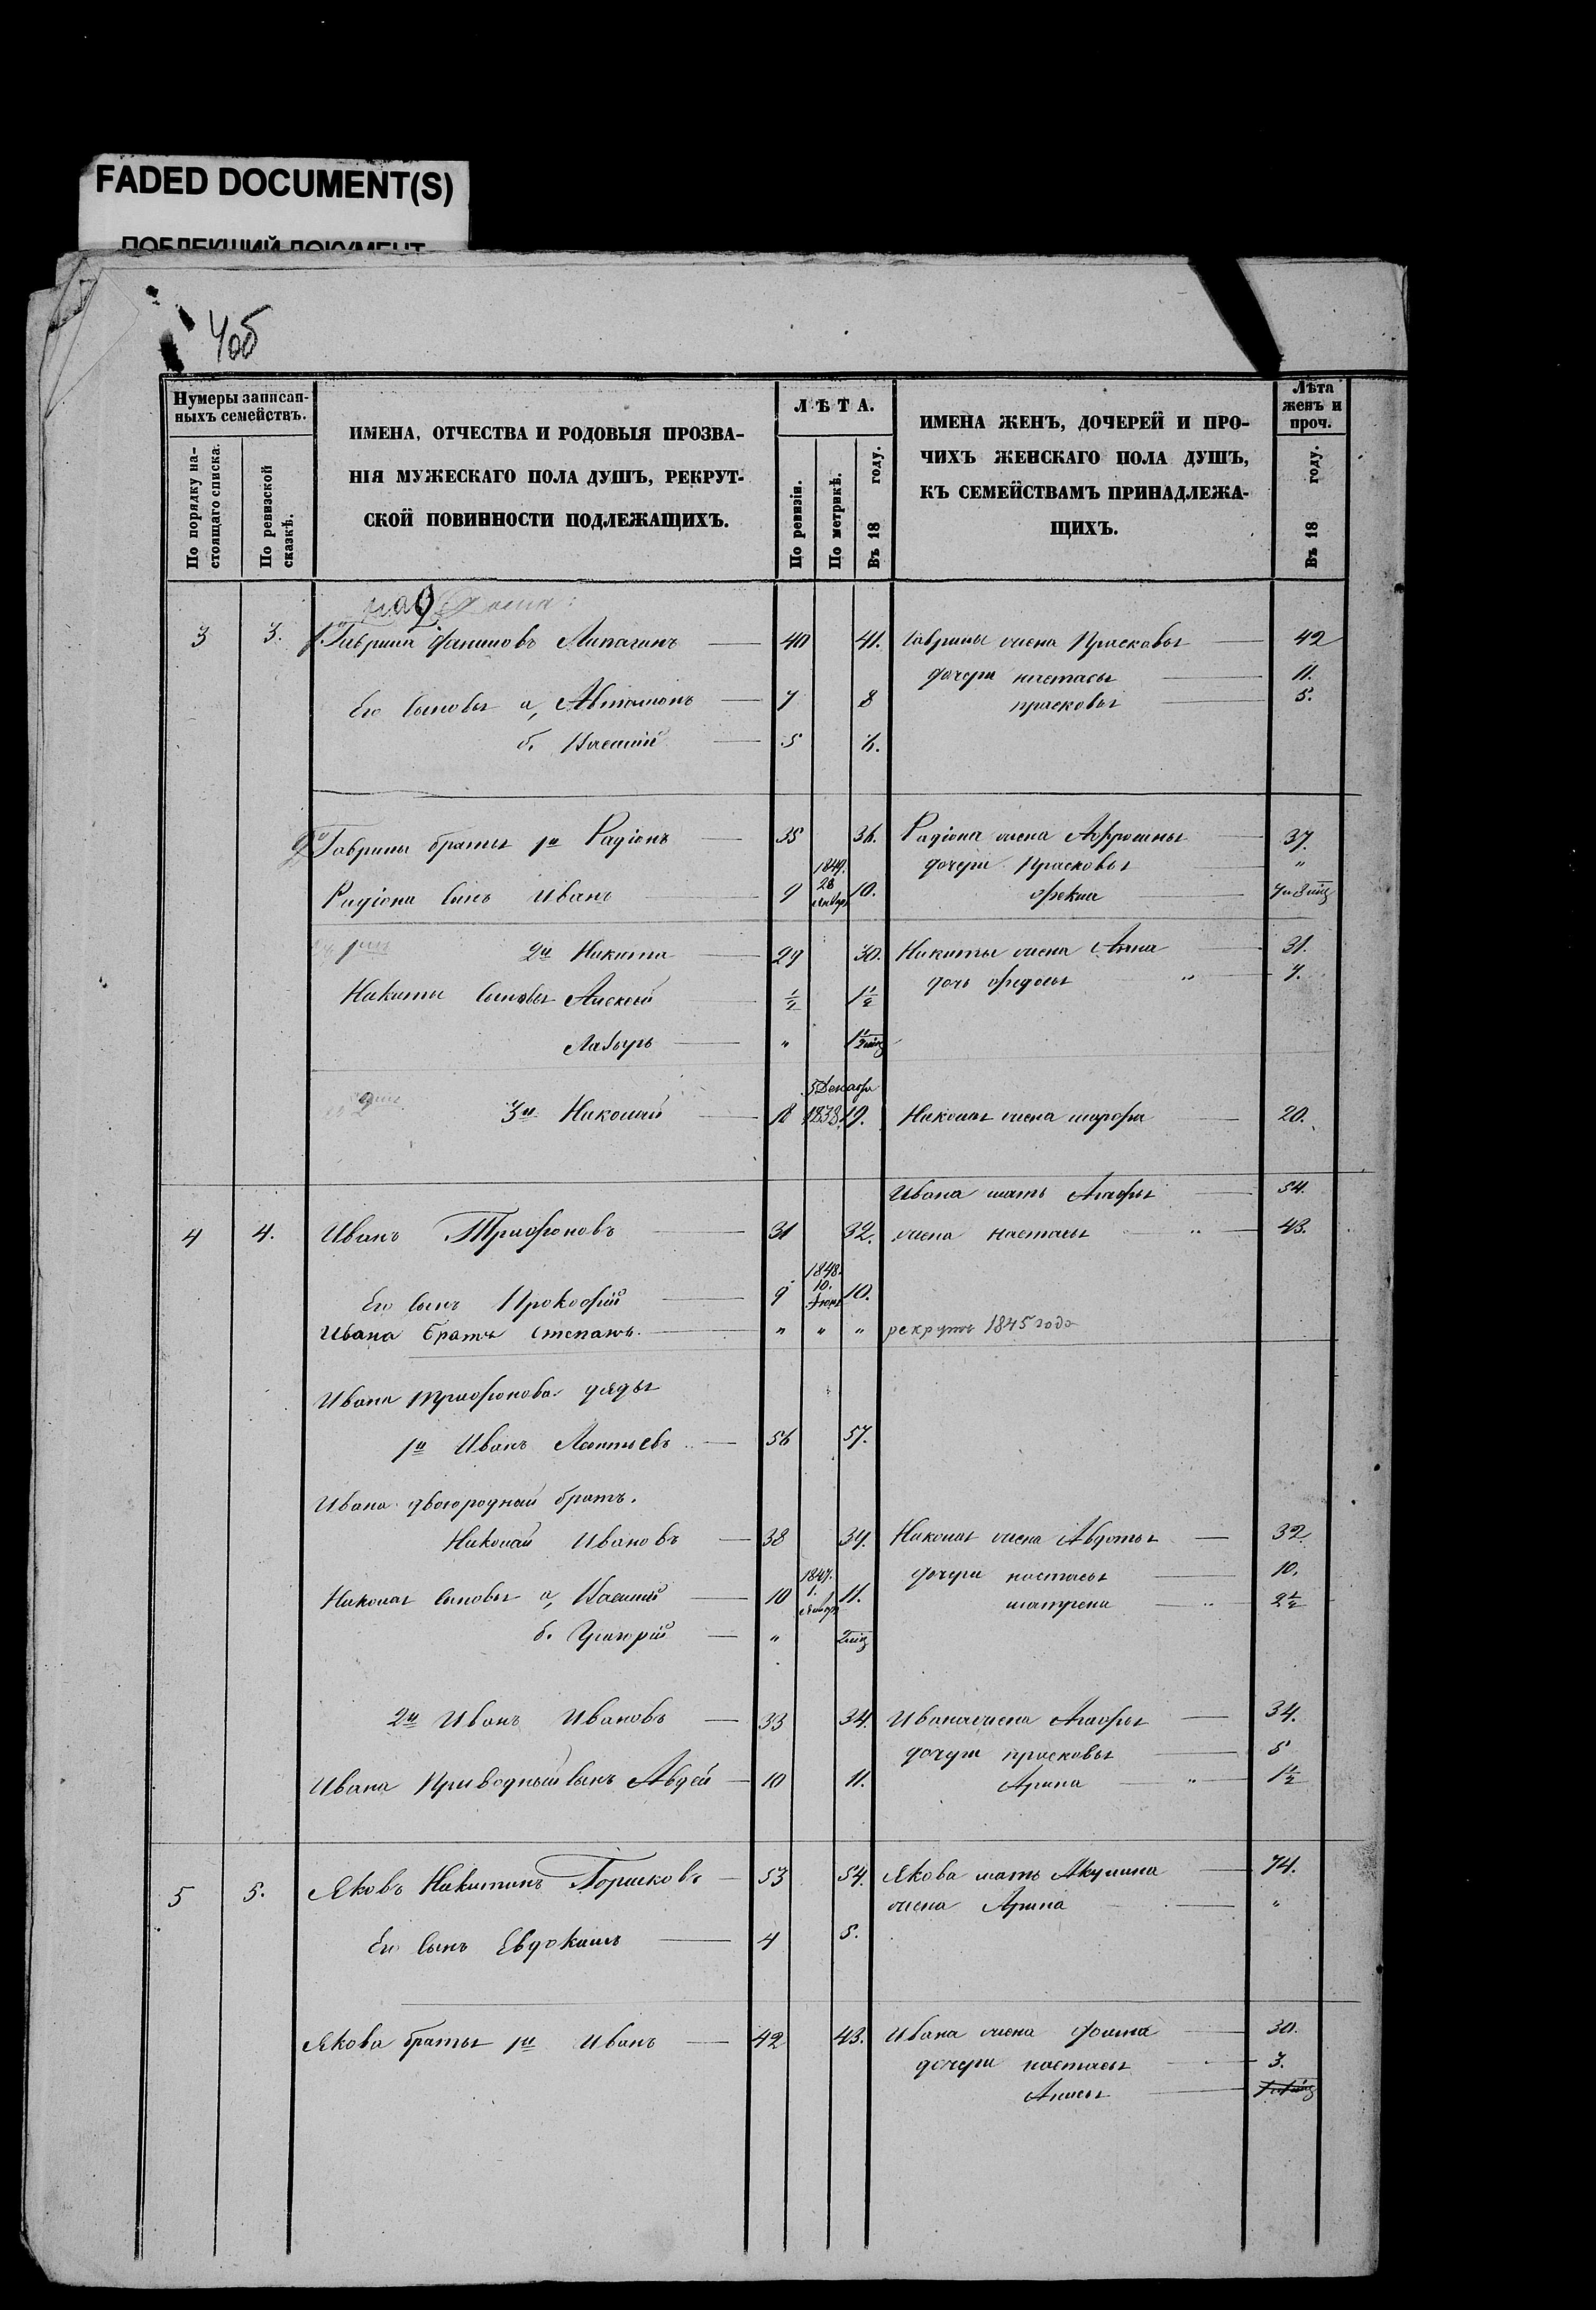 FADED DOCUMENT(S)
ПОБЛЕКШИЙ ДОКУМЕНТ
4об
Нумеры записан-
ныхъ семействъ.
По порядку на-
стоящаго списка.
По ревизской
сказкѣ.
ИМЕНА, ОТЧЕСТВА И РОДОВЫЯ ПРОЗВА-
НІЯ МУЖЕСКАГО ПОЛА ДУШЪ, РЕКРУТ-
СКОЙ ПОВИННОСТИ ПОДЛЕЖАЩИХЪ.
ЛѢТА.
По ревизіи.
По метрикѣ.
Въ 18 году.
ИМЕНА ЖЕНЪ, ДОЧЕРЕЙ И ПРО-
ЧИХЪ ЖЕНСКАГО ПОЛА ДУШЪ,
КЪ СЕМЕЙСТВАМЪ ПРИНАДЛЕЖА-
ЩИХЪ.
Лѣта
женъ и
проч.
Въ 18 году.
3 3. Гаврила 40 41. Гаврилы жена Прасковья 42
дочери настасья 11.
Его сыновья а, Автамонъ 7 8 прасковья 5.
б. Василій 5 6.
Гаврилы братья 1й Радіонъ 35 36. Радіона жена Афросинья 37.
дочери Прасковья "
Радіона сынъ Иванъ 9 1849. 28 10. фекла 7 и 8 мц
2й Никита 29 30. Никиты жена Анна 31.
дочь федосья " 7.
Никиты сыновья Алексей ½ 1½
Лазырь "
5 Декабря
3й Николай 18 1838. 19. Николая жена марфа 20.
Ивана мать Агафья 54.
4 4. Иванъ Трифоновъ 31 32. жена настасья " 43.
Его сынъ Прокофій 9 1848. 10. 10.
Ивана братъ степанъ. " " " рекрутъ 1845 года
Ивана трифонова дяды
1й Иванъ Леонтьевъ 56 57.
Ивана двоюродный братъ.
Николай Ивановъ 38 39. Николая жена Авдотья 32.
дочери настасья 10.
Николая сыновья а, Василий 10 1847. 1. 11. матрена 2½
б. Григорій " 2 мц
2й Иванъ Ивановъ 33 34. Ивана жена Агафья 34.
дочери прасковья 5
Ивана Приводный сынъ Авдей 10 11. Арина " 1½
5 5. Яковъ Никитинъ Горшковъ 53 54. Якова мать Акулина 74.
жена Арина "
Его сынъ Евдокимъ 4 5.
Якова братья 1й Иванъ 42 43. Ивана жена фекла 30.
дочери настасья 3.
Анисья